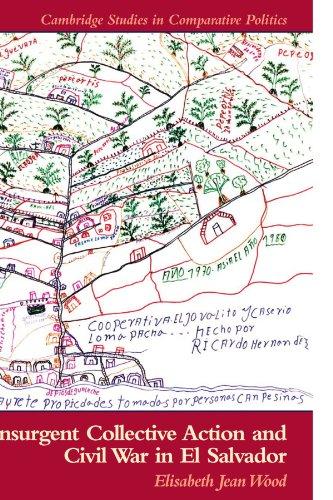 Cambridge Studies in Comparative Politics
AÑO 1970. ASIA EL AÑO 1980
COOPERATIVA. EL JOVALITO Y CASERIO
LOMA PACHA... HECHO POR
RICARDO HERNANDEZ
propiedades tomadas por personas CAMPESINAS
nsurgent Collective Action and
Civil War in El Salvador
Elisabeth Jean Wood